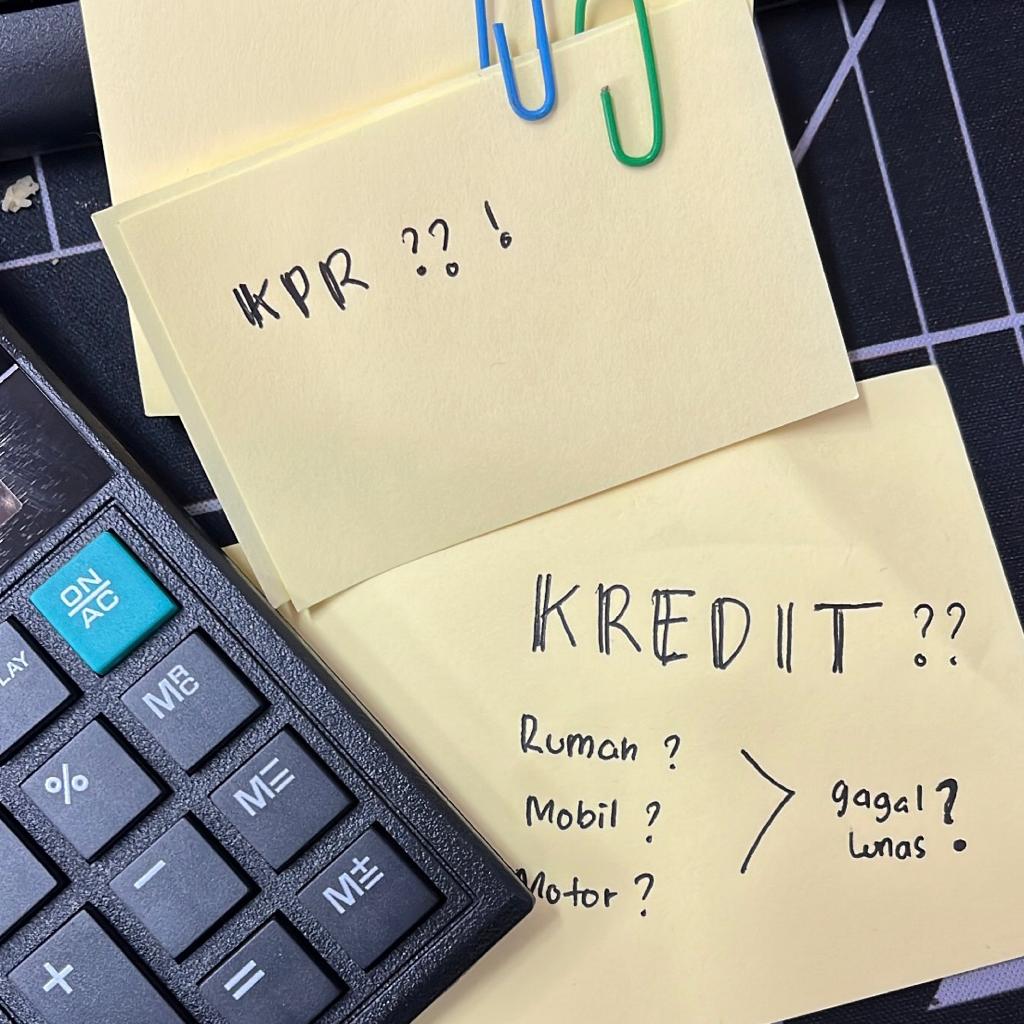 KPR ?? !
KREDIT ??
Rumah ?
Mobil ?
Motor ?
gagal ?
lunas
ON/AC
MRC
%
M=
-
M±
+
=